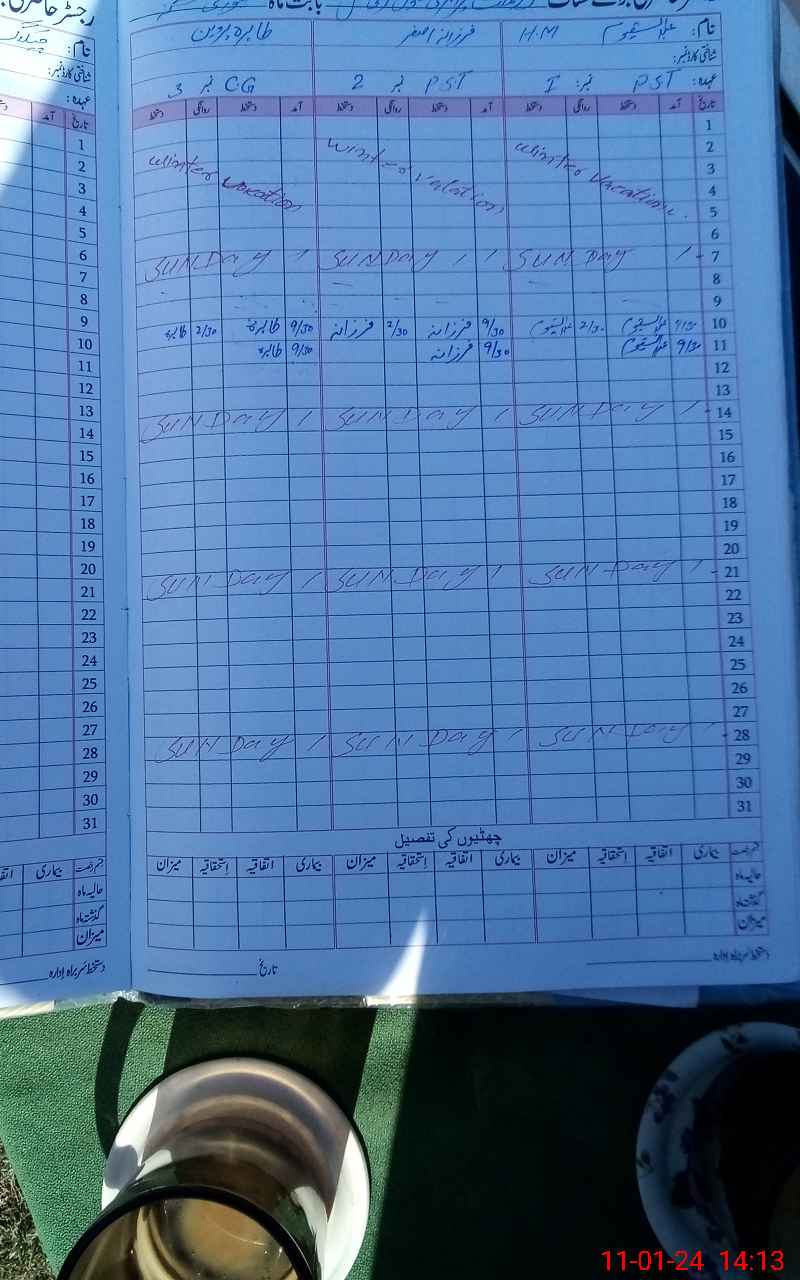 رجسٹر حاضری
بابت ماہ
نام: عبدالقیوم H.M فرزانہ اصغر طاہرہ پروین
شناختی کارڈ نمبر:
عہدہ: PST نمبر: I PST نمبر 2 CG نمبر 3
تاریخ آمد دستخط روانگی دستخط آمد دستخط روانگی دستخط آمد دستخط روانگی دستخط
1
2
winter vacation winter vacation winter vacation
3
4
5
6
7 SUNDAY SUNDAY SUNDAY
8
9
10 9/30 عبدالقیوم 2/30 عبدالقیوم 9/30 فرزانہ 2/30 فرزانہ 9/30 طاہرہ 2/30 طاہرہ
11 9/30 عبدالقیوم 9/30 فرزانہ 9/30 طاہرہ
12
13
14 SUNDAY SUNDAY SUNDAY
15
16
17
18
19
20
21 SUNDAY SUNDAY SUNDAY
22
23
24
25
26
27
28 SUNDAY SUNDAY SUNDAY
29
30
31
چھٹیوں کی تفصیل
قسم رخصت بیماری اتفاقیہ استحقاقیہ میزان بیماری اتفاقیہ استحقاقیہ میزان بیماری اتفاقیہ استحقاقیہ میزان
حالیہ ماہ
گذشتہ ماہ
میزان
دستخط سربراہ ادارہ تاریخ
رجسٹر حاضری
نام:
شناختی کارڈ نمبر:
عہدہ:
تاریخ آمد
1
2
3
4
5
6
7
8
9
10
11
12
13
14
15
16
17
18
19
20
21
22
23
24
25
26
27
28
29
30
31
قسم رخصت بیماری
حالیہ ماہ
گذشتہ ماہ
میزان
دستخط سربراہ ادارہ
11-01-24 14:13